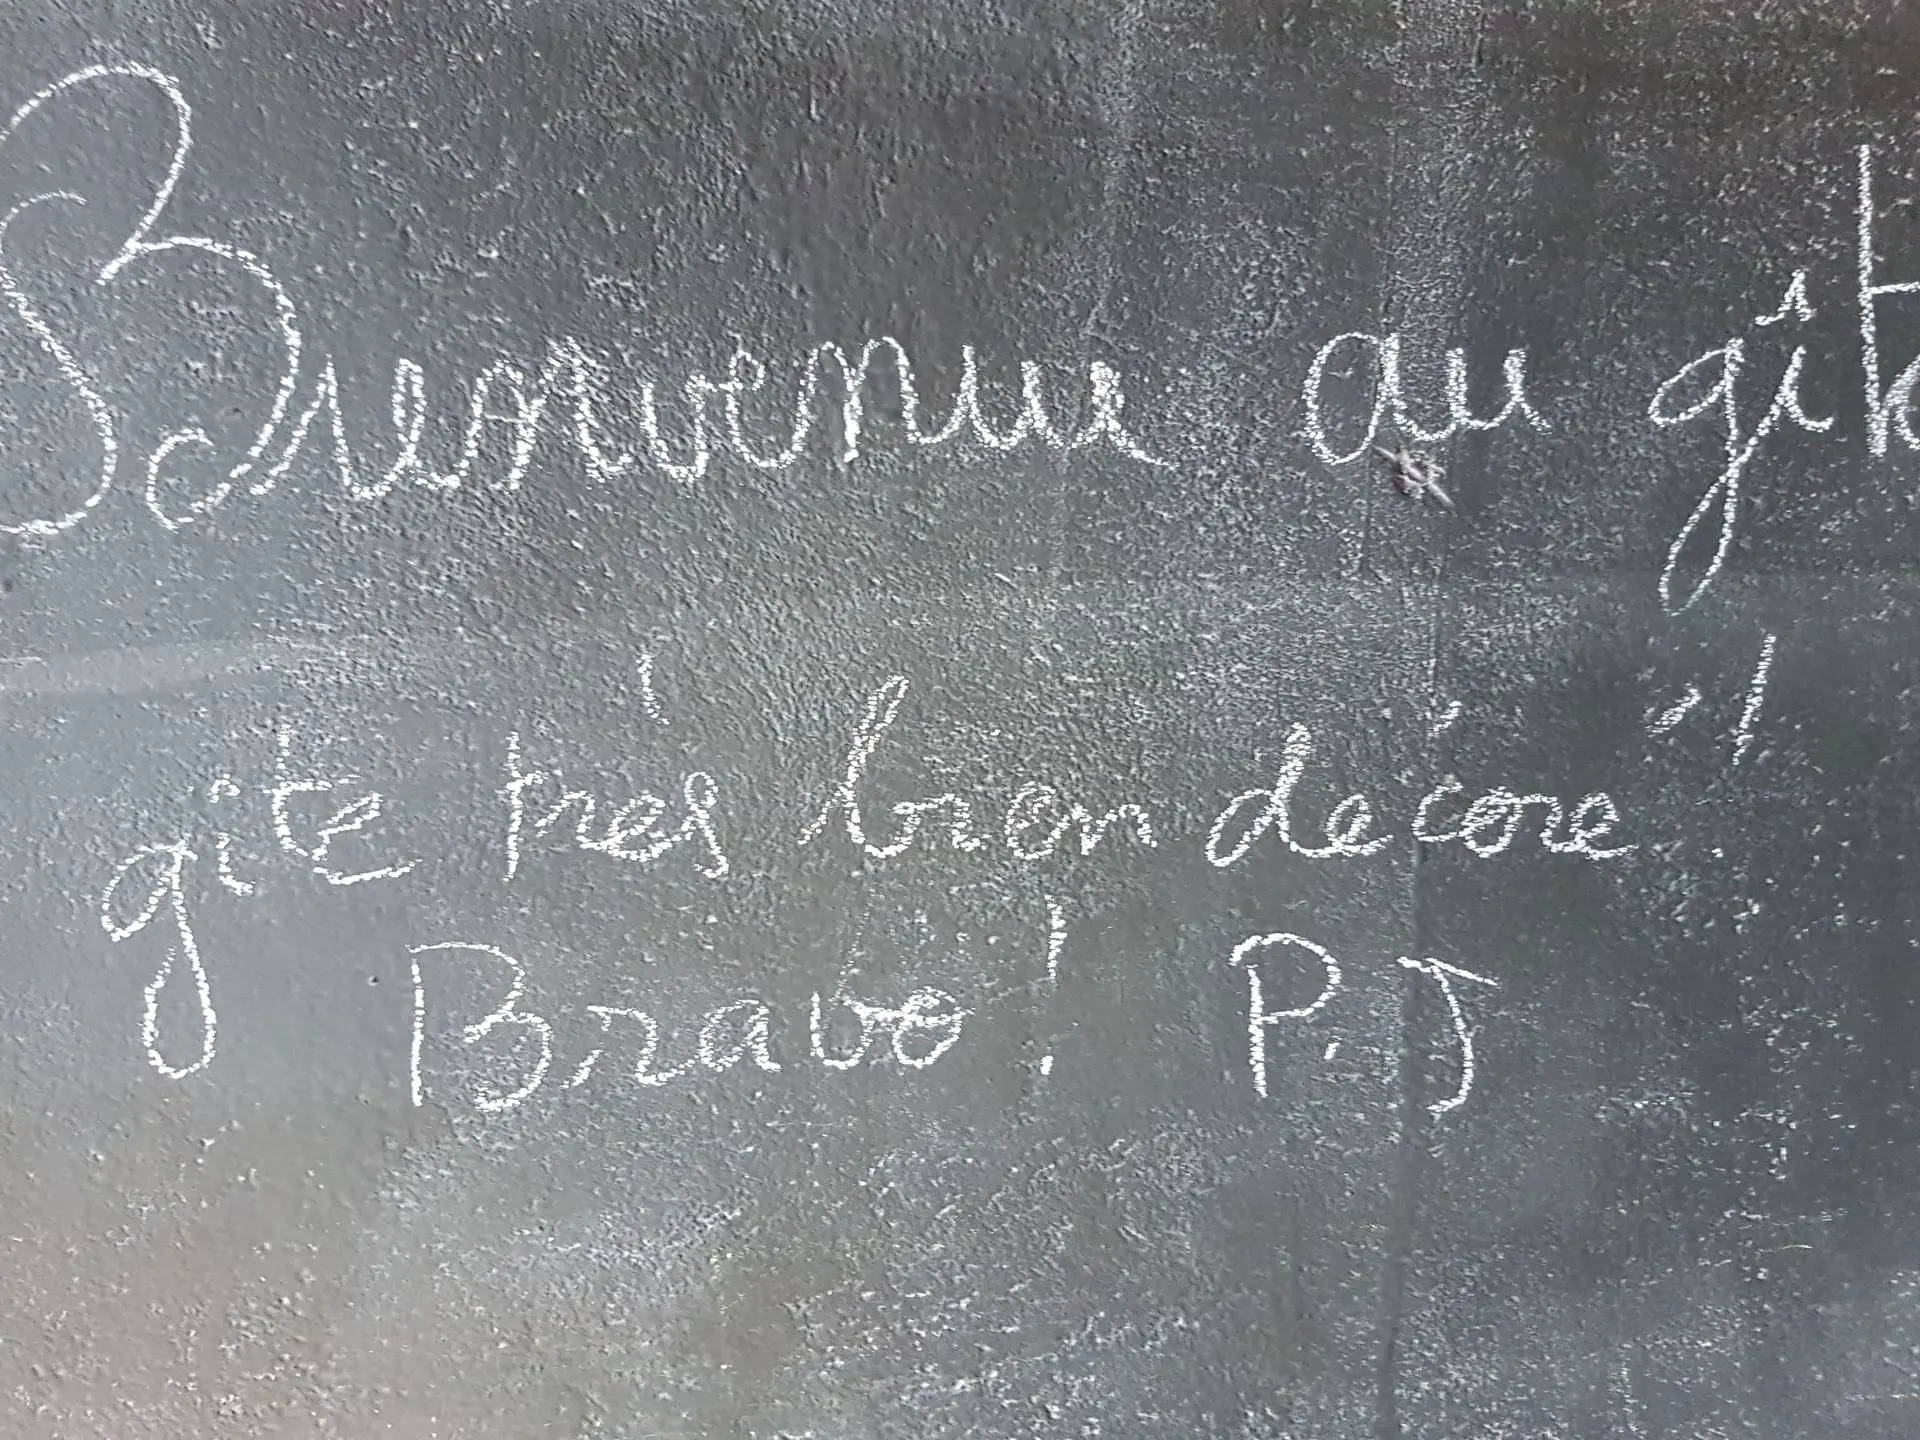 Bienvenue au gîte
gîte très bien décoré !
Bravo ! P.J